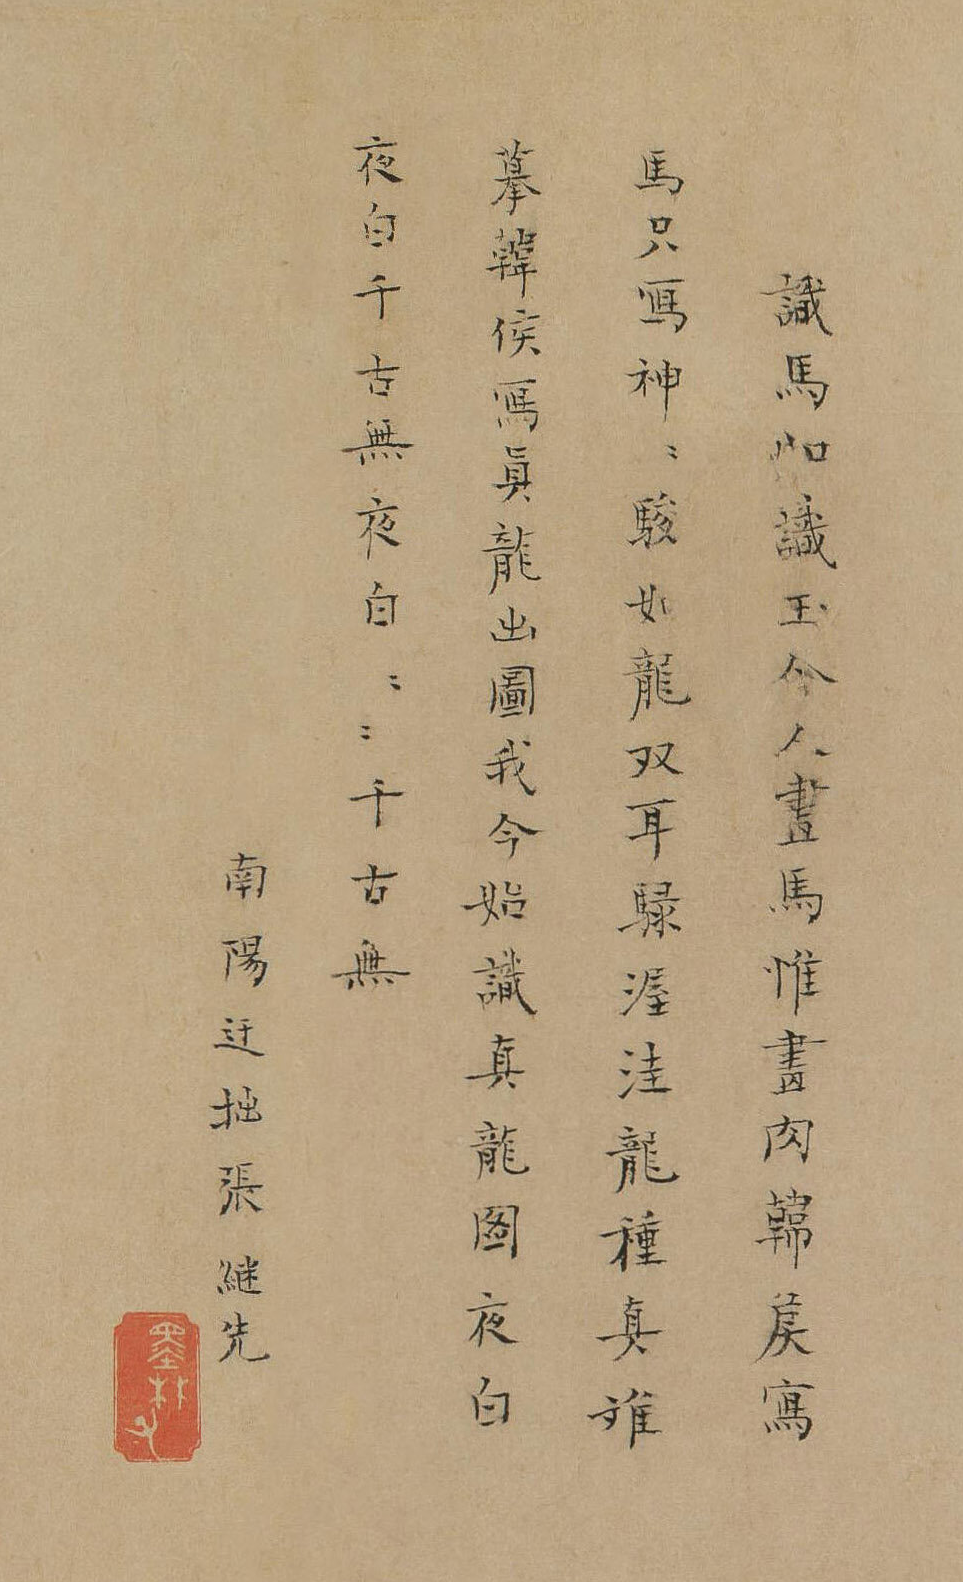 識馬如識玉今人畫馬惟畫肉韓侯寫
馬只寫神〻駿如龍双耳騄渥洼龍種真难
摹韓侯寫真龍出圖我今始識真龍图夜白
夜白千古無夜白〻〻千古無
南陽迂拙張継先
墨林